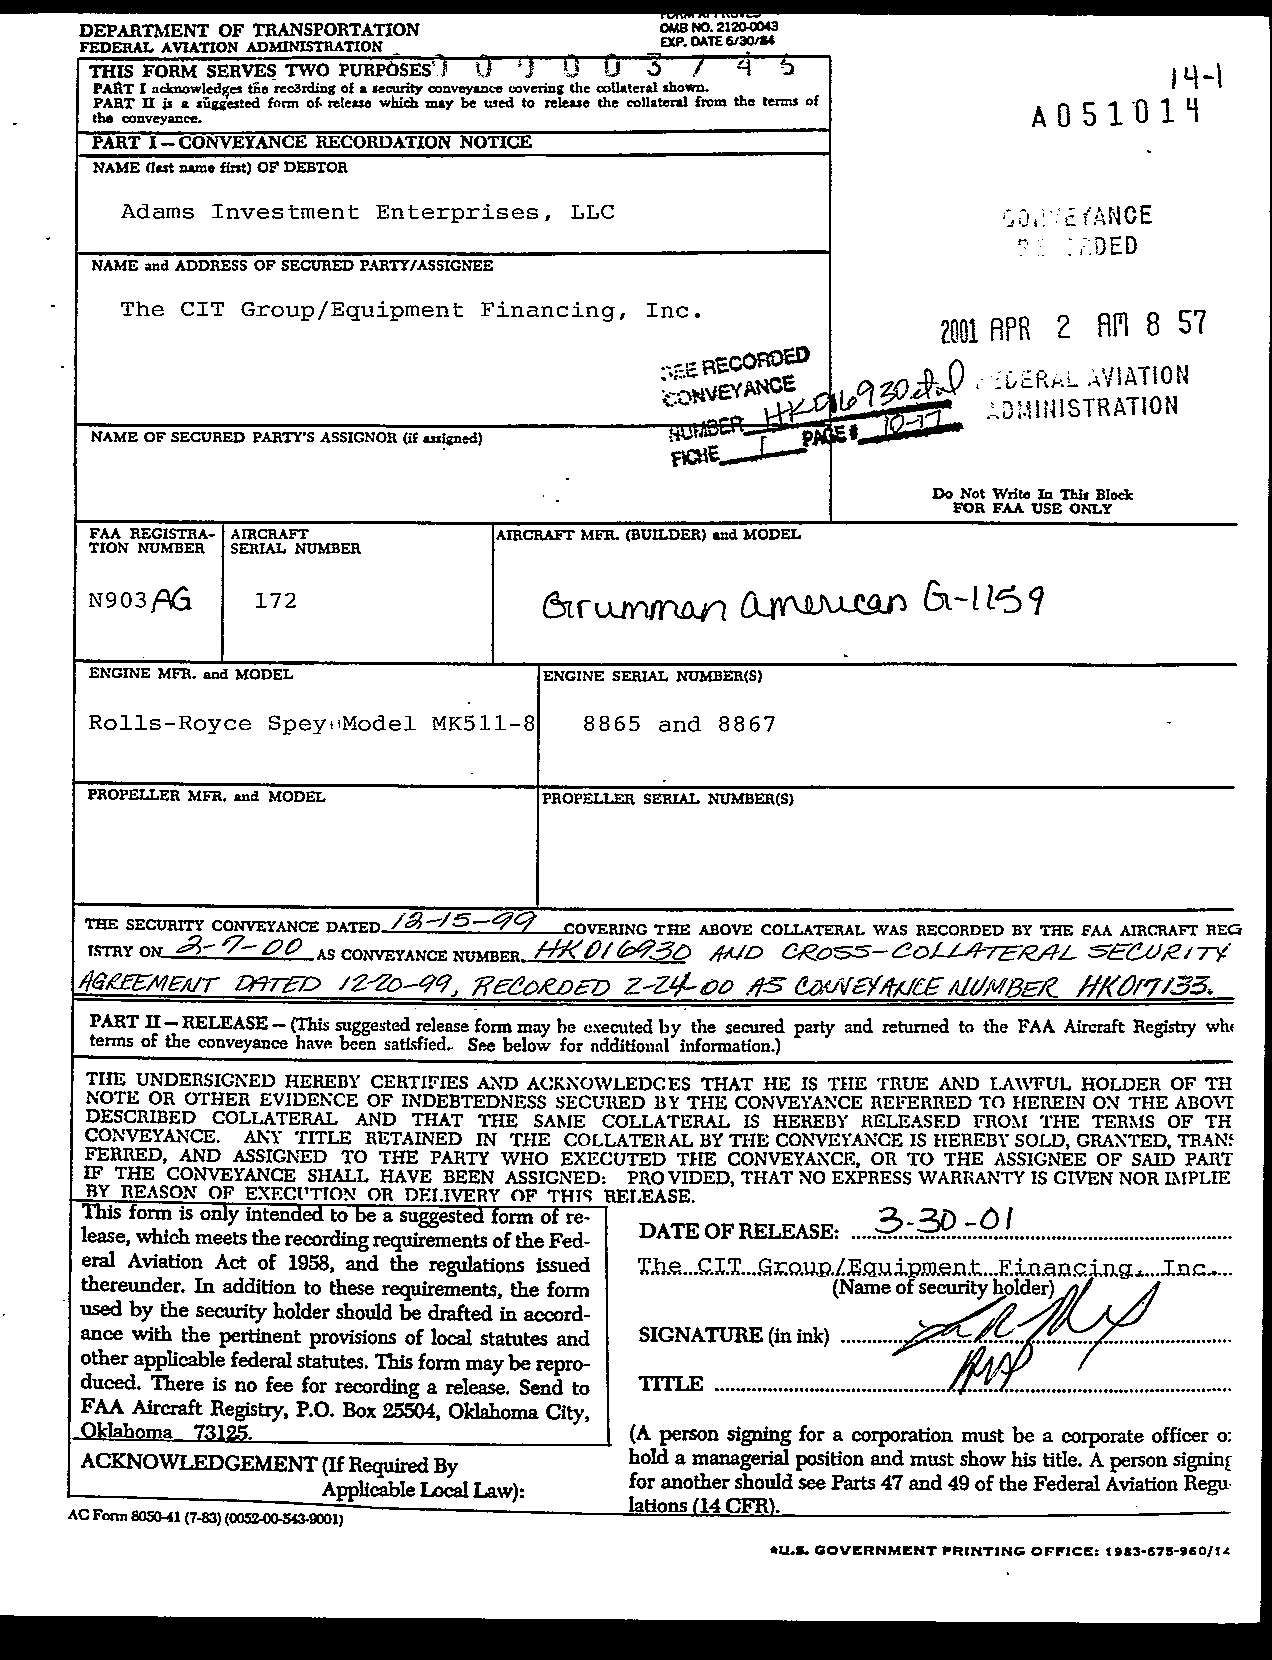 FORM APPROVED
DEPARTMENT OF TRANSPORTATION
OMB NO. 2120-0043
FEDERAL AVIATION ADMINISTRATION
EXP. DATE 6/30/84
THIS FORM SERVES TWO PURPOSES
0 0 0 0 3 7 4 5
PART I acknowledges the recording of a security conveyance covering the collateral shown.
PART II is a suggested form of release which may be used to release the collateral from the terms of
the conveyance.
14-1
A051014
PART I — CONVEYANCE RECORDATION NOTICE
NAME (last name first) OF DEBTOR
Adams Investment Enterprises, LLC
CONVEYANCE
RECORDED
NAME and ADDRESS OF SECURED PARTY/ASSIGNEE
The CIT Group/Equipment Financing, Inc.
2001 APR 2 AM 8 57
FEDERAL AVIATION
ADMINISTRATION
SEE RECORDED
CONVEYANCE
NUMBER HK016930 etal
FICHE 1 PAGE # 10-17
NAME OF SECURED PARTY'S ASSIGNOR (if assigned)
Do Not Write In This Block
FOR FAA USE ONLY
FAA REGISTRA-
TION NUMBER
N903AG
AIRCRAFT
SERIAL NUMBER
172
AIRCRAFT MFR. (BUILDER) and MODEL
Grumman American G-1159
ENGINE MFR. and MODEL
Rolls-Royce Spey Model MK511-8
ENGINE SERIAL NUMBER(S)
8865 and 8867
PROPELLER MFR. and MODEL
PROPELLER SERIAL NUMBER(S)
THE SECURITY CONVEYANCE DATED 12-15-99 COVERING THE ABOVE COLLATERAL WAS RECORDED BY THE FAA AIRCRAFT REG
ISTRY ON 2-7-00 AS CONVEYANCE NUMBER HK016930 AND CROSS-COLLATERAL SECURITY
AGREEMENT DATED 12-20-99, RECORDED 2-24-00 AS CONVEYANCE NUMBER HK017133.
PART II — RELEASE — (This suggested release form may be executed by the secured party and returned to the FAA Aircraft Registry whe
terms of the conveyance have been satisfied. See below for additional information.)
THE UNDERSIGNED HEREBY CERTIFIES AND ACKNOWLEDGES THAT HE IS THE TRUE AND LAWFUL HOLDER OF TH
NOTE OR OTHER EVIDENCE OF INDEBTEDNESS SECURED BY THE CONVEYANCE REFERRED TO HEREIN ON THE ABOVE
DESCRIBED COLLATERAL AND THAT THE SAME COLLATERAL IS HEREBY RELEASED FROM THE TERMS OF TH
CONVEYANCE. ANY TITLE RETAINED IN THE COLLATERAL BY THE CONVEYANCE IS HEREBY SOLD, GRANTED, TRANS
FERRED, AND ASSIGNED TO THE PARTY WHO EXECUTED THE CONVEYANCE, OR TO THE ASSIGNEE OF SAID PART
IF THE CONVEYANCE SHALL HAVE BEEN ASSIGNED: PROVIDED, THAT NO EXPRESS WARRANTY IS GIVEN NOR IMPLIE
BY REASON OF EXECUTION OR DELIVERY OF THIS RELEASE.
This form is only intended to be a suggested form of re-
lease, which meets the recording requirements of the Fed-
eral Aviation Act of 1958, and the regulations issued
thereunder. In addition to these requirements, the form
used by the security holder should be drafted in accord-
ance with the pertinent provisions of local statutes and
other applicable federal statutes. This form may be repro-
duced. There is no fee for recording a release. Send to
FAA Aircraft Registry, P.O. Box 25504, Oklahoma City,
Oklahoma 73125.
ACKNOWLEDGEMENT (If Required By
Applicable Local Law):
DATE OF RELEASE: 3-30-01
The CIT Group/Equipment Financing, Inc.
(Name of security holder)
SIGNATURE (in ink)
TITLE
(A person signing for a corporation must be a corporate officer o
hold a managerial position and must show his title. A person signing
for another should see Parts 47 and 49 of the Federal Aviation Regu-
lations (14 CFR).
AC Form 8050-41 (7-83) (0052-00-543-9001)
*U.S. GOVERNMENT PRINTING OFFICE: 1983-675-960/14